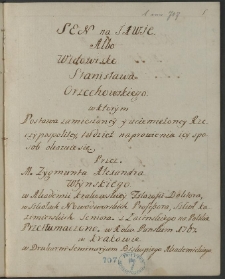 SEN na JAWIE
Albo
Widowisko
Stanisława
Orzechowskiego
w ktorym
Postawa zamieszaney y uciemiężoney Rze-
czypospolitey tudzież naprawienia iey spo-
sob okazuie się
Przez
M. Zygmunta Alexandra
Włynskiego
w Akademii Krakowskiey Filozofii Doktora,
w Szkołach Nowodworskich Professora, Szkoł Ka-
zimirskich Seniora z Łacińskiego na Polskie
Przetłumaczone, w Roku Pańskim 1767
w Krakowie
w Drukarni Seminaryum Biskupiego Akademickiego